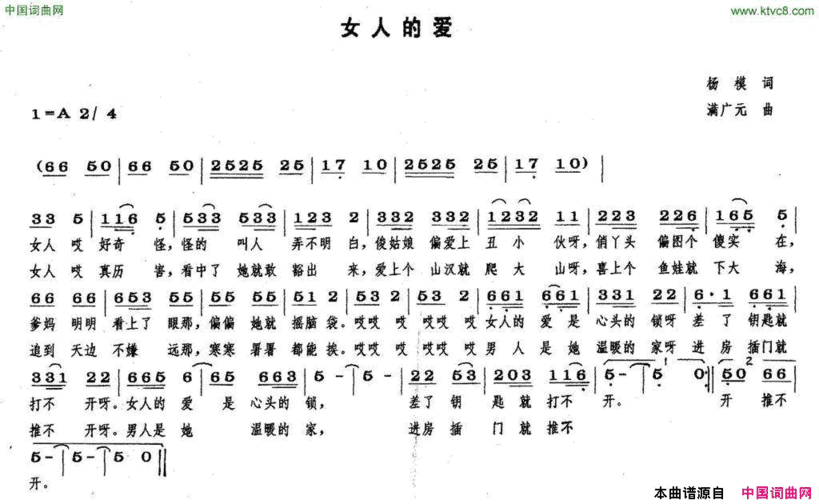 中国词曲网
www.ktvc8.com
女人的爱
杨模 词
1=A 2/4
满广元 曲
(66 50|66 50|2525 25|17 10|2525 25|17 10)|
33 5|116 5|533 533|123 2|332 332|1232 11|223 226|165 5|
女人 哎 好奇 怪，怪的 叫人 弄不明 白，傻姑娘 偏爱上 丑小 伙呀，俏丫头 偏图个 傻实 在，
女人 哎 真厉 害，看中了 她就敢 豁出 来，爱上个 山汉就 爬大 山呀，喜上个 鱼娃就 下大 海，
66 66|653 553|55 55|51 2|53 53|53 53|661 661|331 22|6·1 661|
爹妈 明明 看上了 眼那，偏偏 她就 摇脑 袋。哎哎 哎 哎哎 哎 女人的 爱是 心头的 锁呀 差了 钥匙就
追到 天边 不嫌 远那，寒寒 暑暑 都能 挨。哎哎 哎 哎哎 哎 男人 是她 温暖的 家呀 进房 插门就
331 22|665 6|65 663|5-|5-|22 53|203 113|116|5-|5 0:|50 66|
打不 开呀。女人的 爱 是 心头的 锁， 差了 钥 匙就 打不 开。 开 推不
推不 开呀。男人是 她 温暖的 家， 进房 插 门就 推不
5-|5-|5 0|
开。
本曲谱源自 中国词曲网